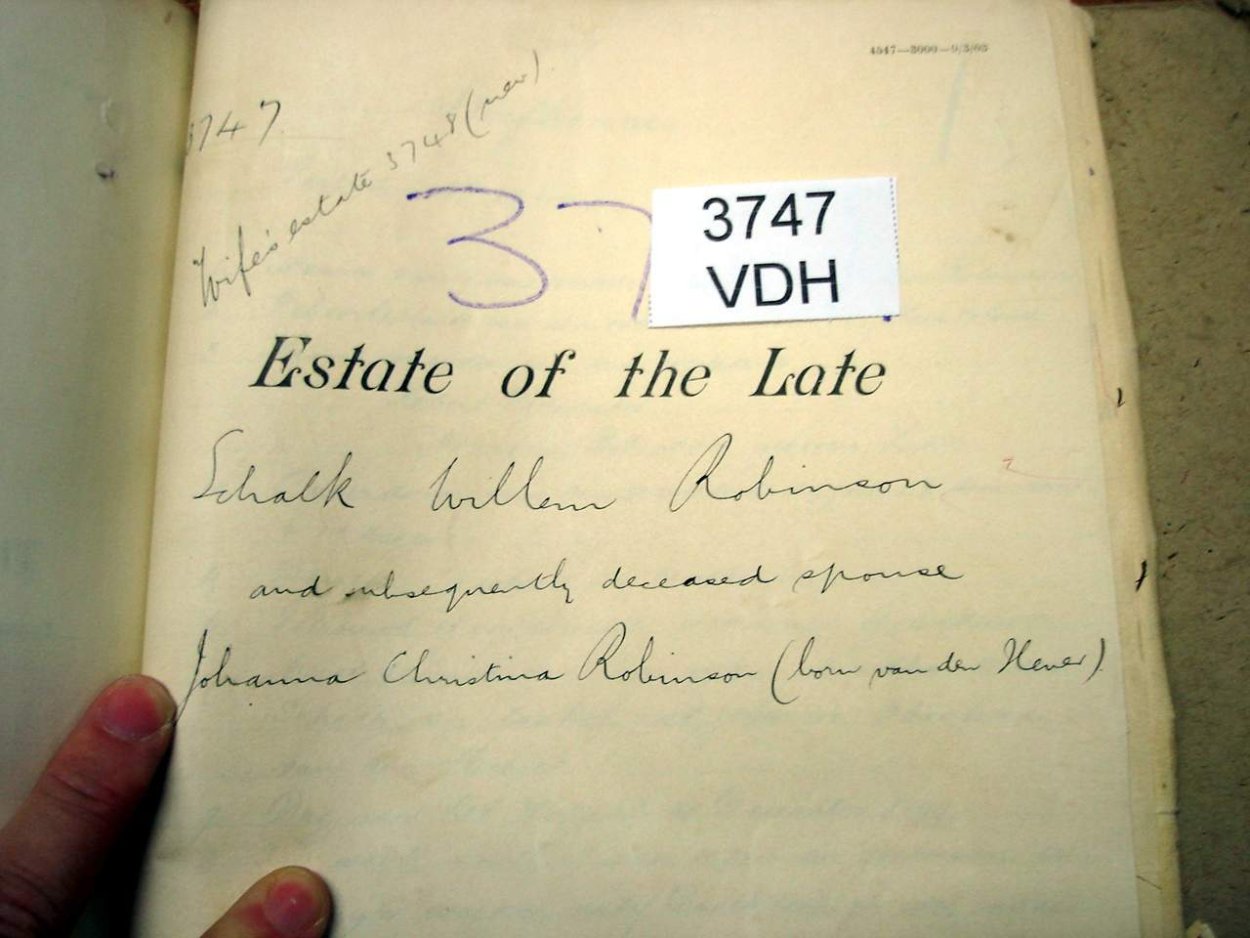 4547—3000—9/3/03
3747
Wife's estate 3748 (new).
37
3747
VDH
Estate of the Late
Schalk Willem Robinson
and subsequently deceased spouse
Johanna Christina Robinson (born van den Hever)